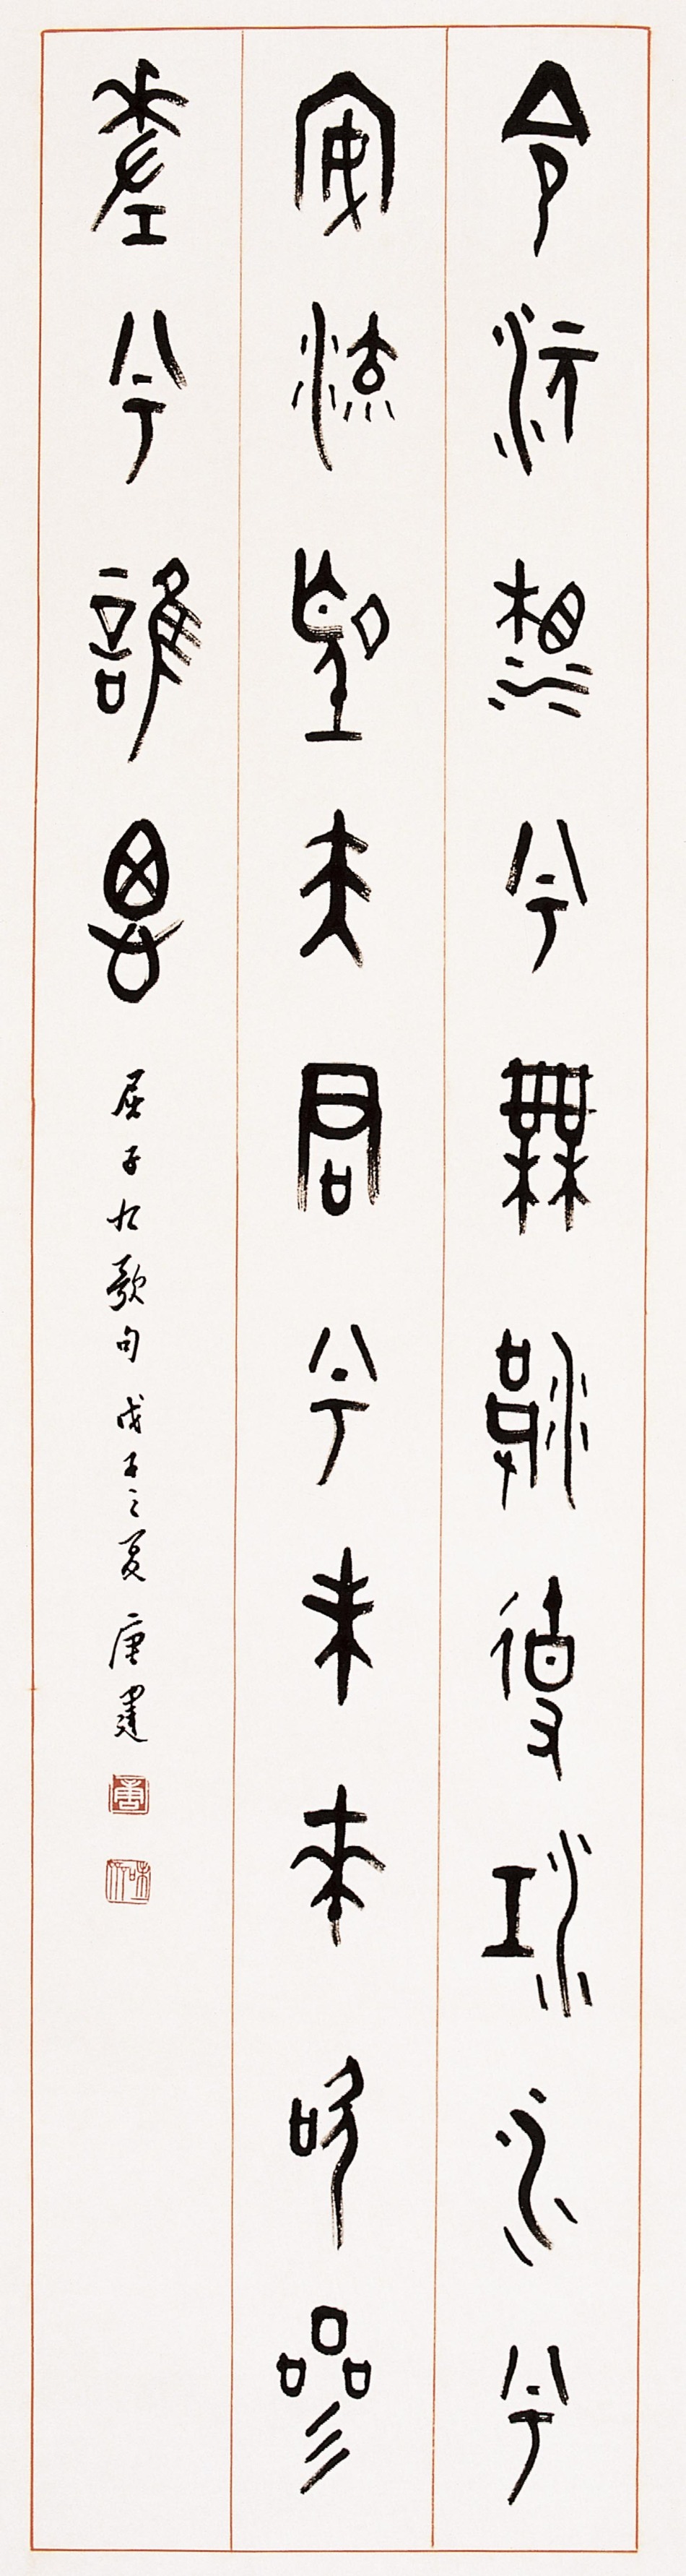 令沅湘兮無波使江水兮
安流望夫君兮未來吹參
差兮誰思 屈子九歌句戊子之夏唐建
唐